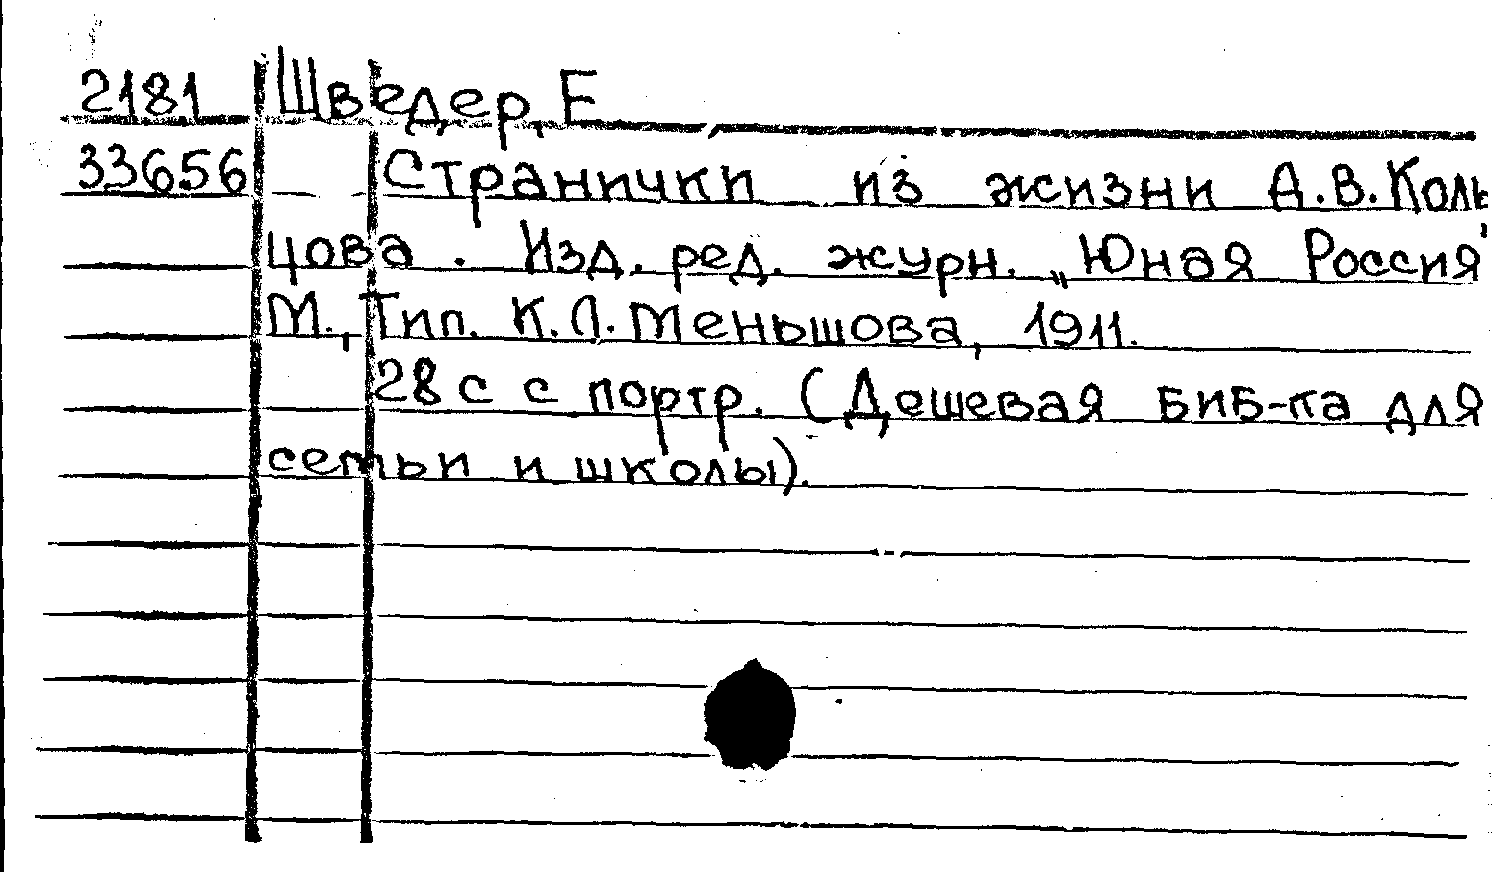 2181 Шведер, Е
33656 Странички из жизни А.В.Коль
цова. Изд. ред. журн. „Юная Россия"
М., Тип. К.Л. Меньшова, 1911.
28 с с портр. (Дешевая биб-ка для
семьи и школы).